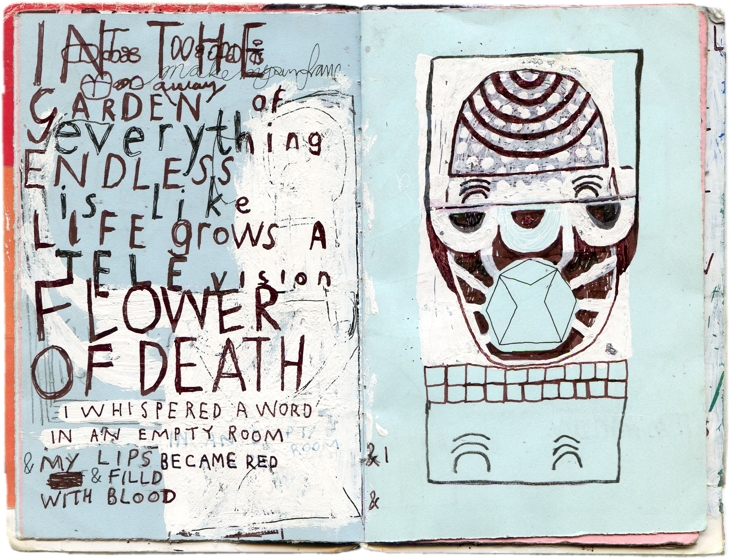 IN THE
make
away
GARDEN of
everything
ENDLESS
is like
LIFE grows A
TELEvision
FLOWER
OF DEATH
I WHISPERED A WORD
IN AN EMPTY ROOM
& MY LIPS BECAME RED
& FILLD
WITH BLOOD
& I
&